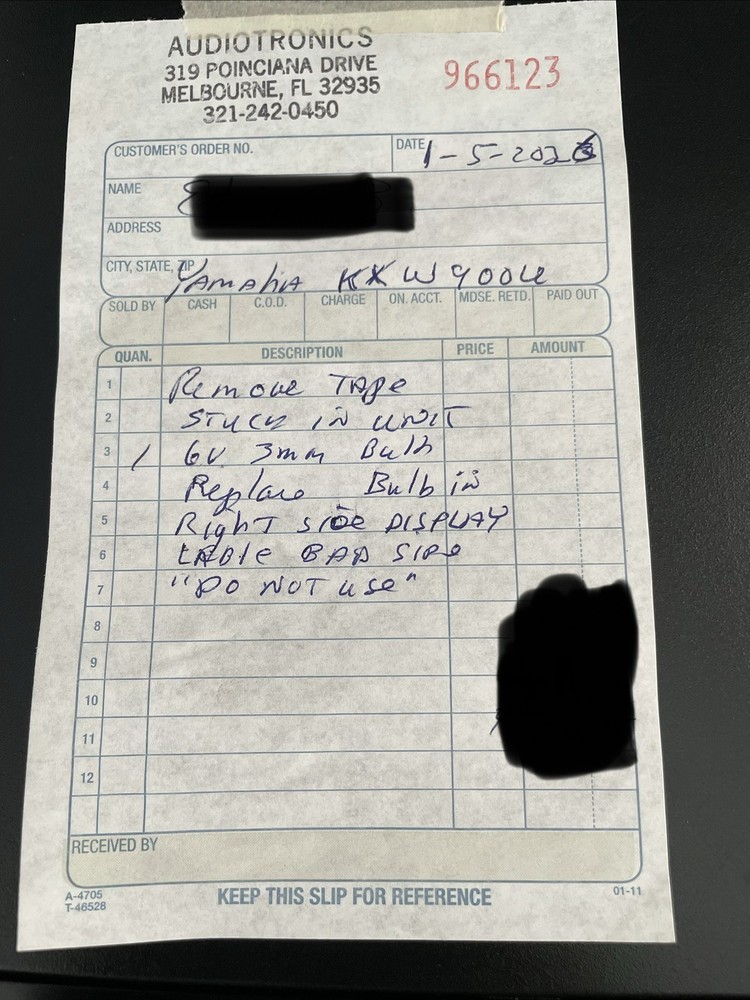 AUDIOTRONICS
319 POINCIANA DRIVE
MELBOURNE, FL 32935
321-242-0450
966123
CUSTOMER'S ORDER NO.
DATE 1-5-2026
NAME
ADDRESS
CITY, STATE, ZIP
Yamaha KXW900U
SOLD BY CASH C.O.D. CHARGE ON. ACCT. MDSE. RETD. PAID OUT
QUAN. DESCRIPTION PRICE AMOUNT
1 Remove TAPe
2 STUCK in UNIT
3 1 6V 3mm Bulb
4 Replace Bulb in
5 RighT SiDe DISPLAY
6 LABle BAD SIDe
7 "DO NOT use"
8
9
10
11
12
RECEIVED BY
A-4705
T-46528
KEEP THIS SLIP FOR REFERENCE
01-11